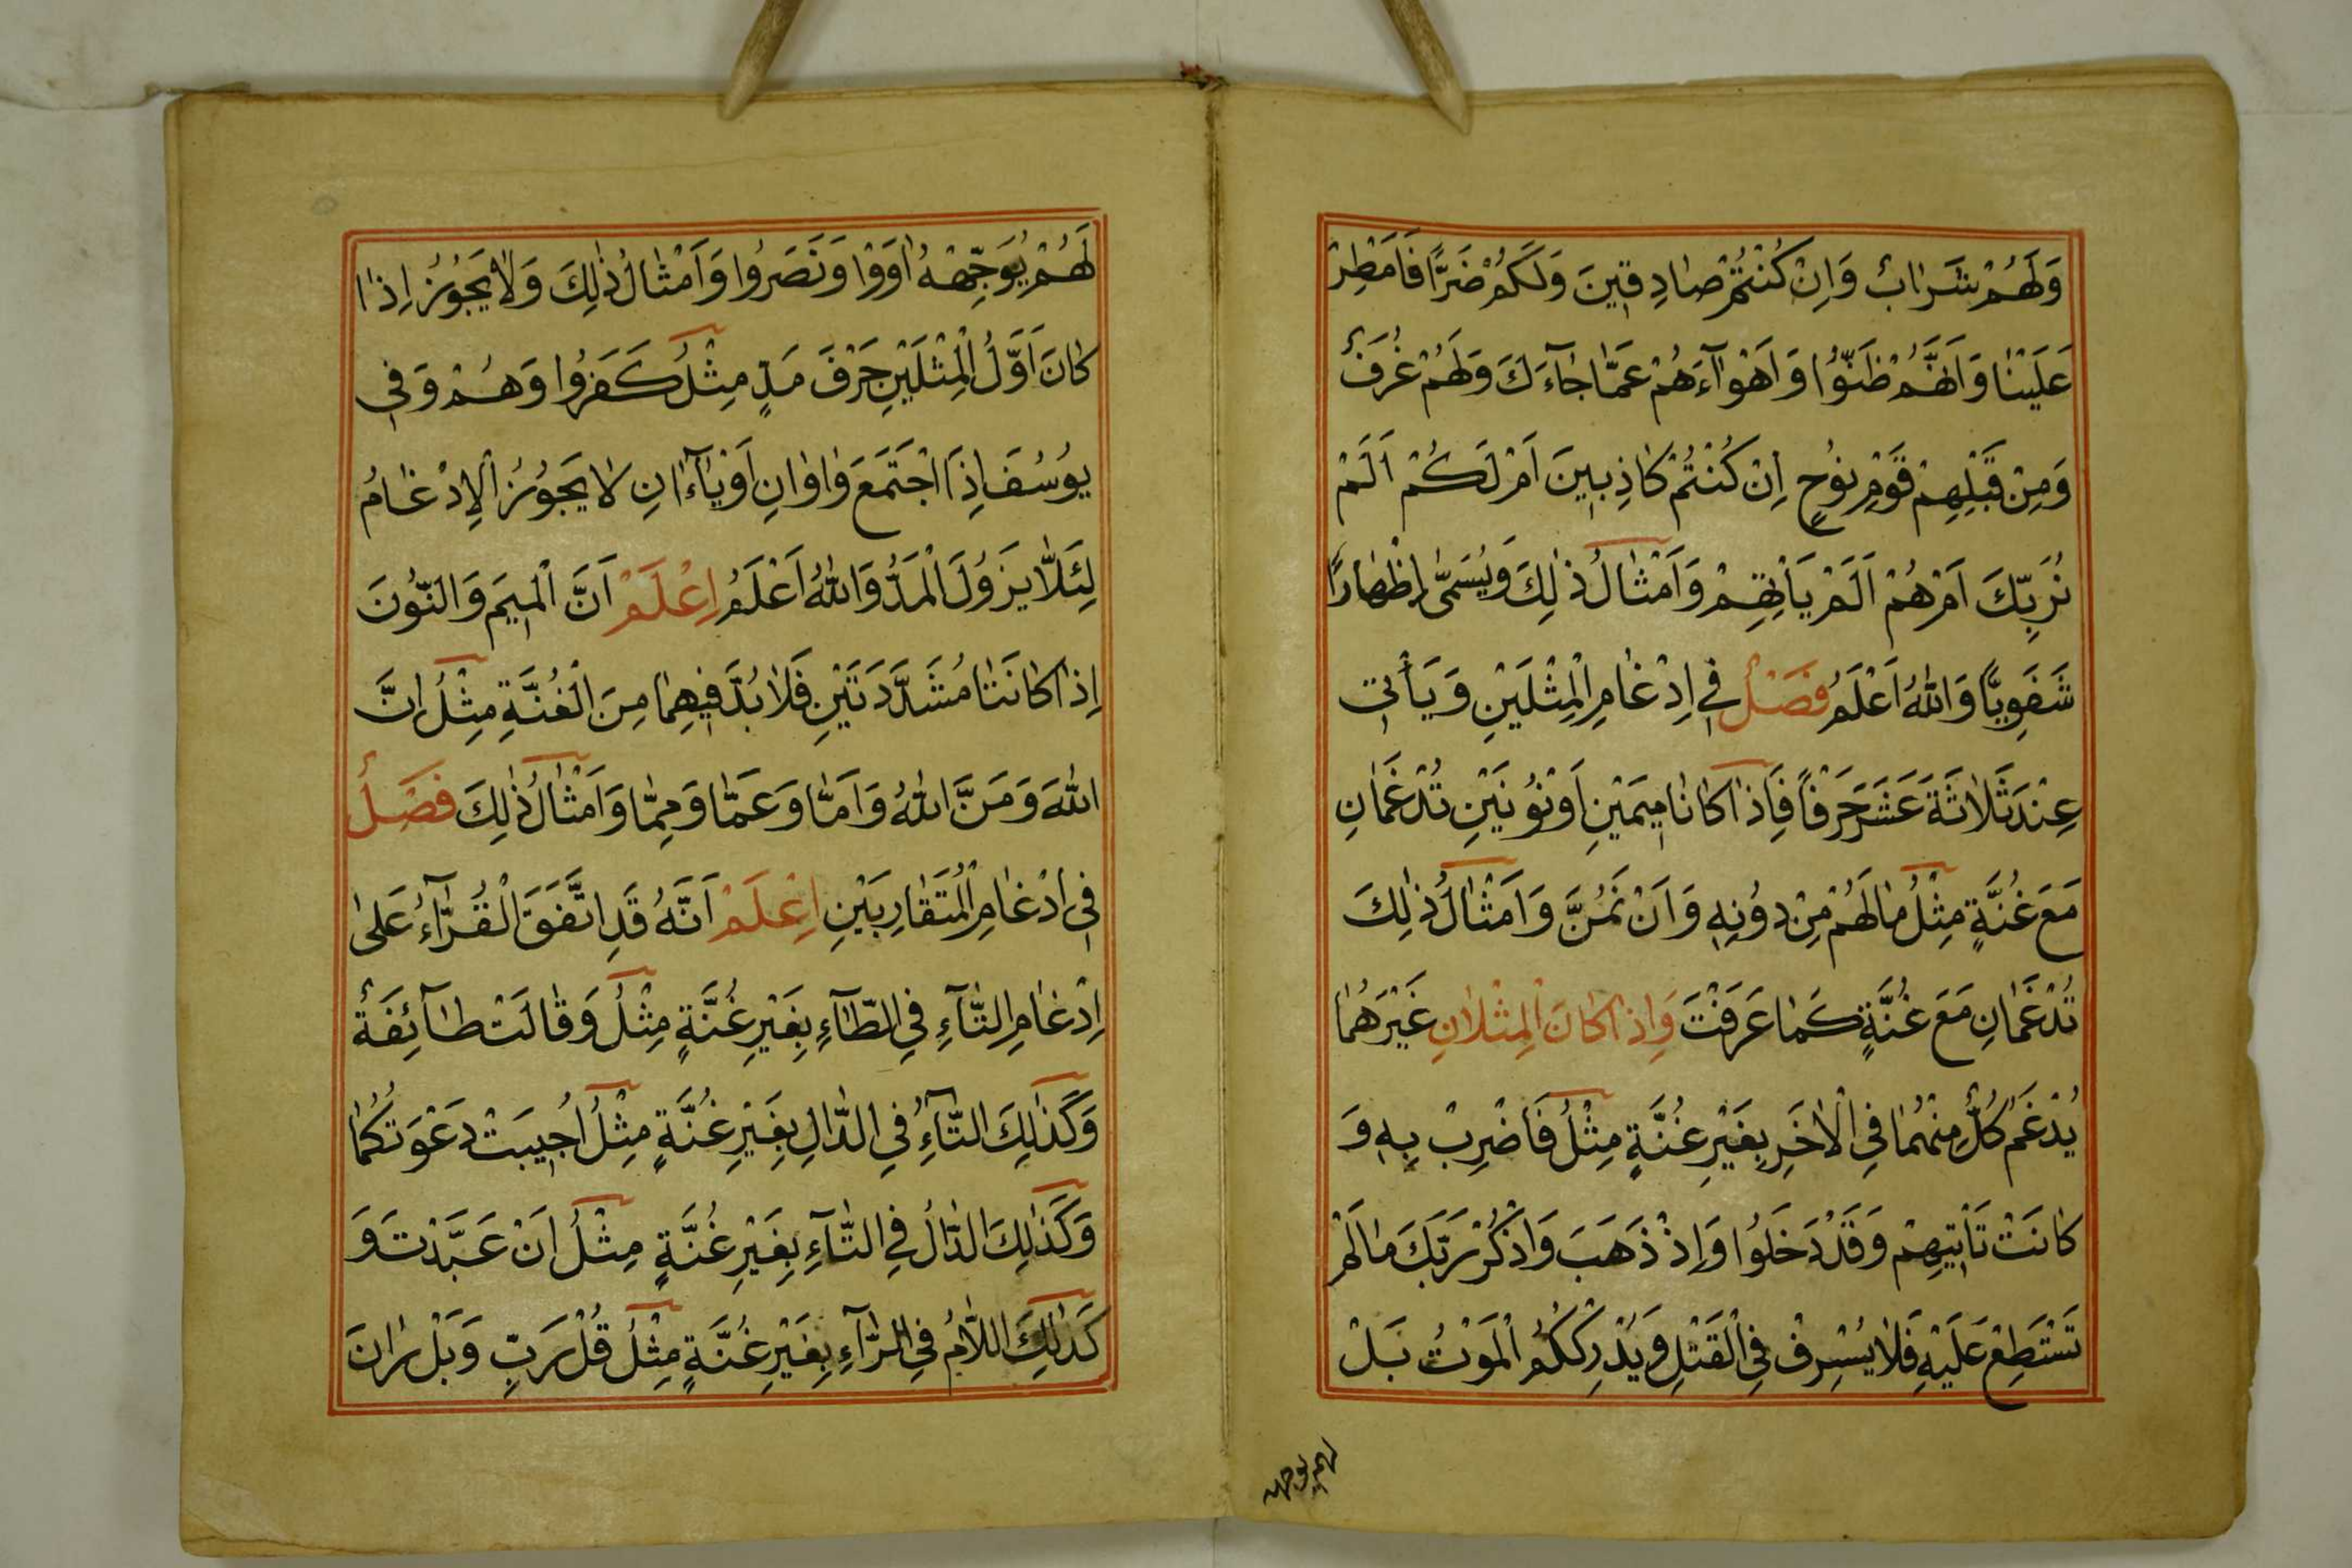 وَلَهُمْ شَرَابٌ وَاِنْ كُنْتُمْ صَادِقِينَ وَلَكُمْ ضَرًّا فَاَمْطِرْ
عَلَيْنَا وَاَنَّهُمْ ظَنُّوا وَاَهْوَآءَهُمْ عَمَّا جَآءَكَ وَلَهُمْ غُرَفٌ
وَمِنْ قَبْلِهِمْ قَوْمِ نُوُحٍ اِنْ كُنْتُمْ كَاذِبِينَ اَمْ لَكُمْ اَلَمْ
نُرَبِّكَ اَمْ هُمْ اَلَمْ يَأْتِهِمْ وَاَمْثَالُ ذٰلِكَ وَيُسَمّٰى اِظْهَارًا
شَفَوِيًّا وَاللهُ اَعْلَمُ فَصْلٌ فِي اِدْغَامِ الْمِثْلَيْنِ وَيَأْتِي
عِنْدَ ثَلَاثَةَ عَشَرَ حَرْفًا فَاِذَا كَانَا مِيمَيْنِ اَوْ نُونَيْنِ تُدْغَمَانِ
مَعَ غُنَّةٍ مِثْلُ مَا لَهُمْ مِنْ دُونِهِ وَاَنْ نَمُنَّ وَاَمْثَالُ ذٰلِكَ
تُدْغَمَانِ مَعَ غُنَّةٍ كَمَا عَرَفْتَ وَاِذَا كَانَ الْمِثْلَانِ غَيْرَهُمَا
يُدْغَمُ كُلٌّ مِنْهُمَا فِي الْاٰخَرِ بِغَيْرِ غُنَّةٍ مِثْلُ فَاضْرِبْ بِهِ وَ
كَانَتْ تَأْتِيهِمْ وَقَدْ دَخَلُوا وَاِذْ ذَهَبَ وَاذْكُرْ رَبَّكَ مَا لَمْ
تَسْتَطِعْ عَلَيْهِ فَلَا يُسْرِفْ فِي الْقَتْلِ وَيُدْرِكْكُمُ الْمَوْتُ بَلْ
لهم يوجهه
لَهُمْ يُوَجِّهْهُ اٰوَوْا وَنَصَرُوا وَاَمْثَالُ ذٰلِكَ وَلَا يَجُوزُ اِذَا
كَانَ اَوَّلُ الْمِثْلَيْنِ حَرْفَ مَدٍّ مِثْلُ كَفَرُوا وَهُمْ وَفِي
يُوسُفَ اِذَا اجْتَمَعَ وَاوَانِ اَوْ يَآءَانِ لَا يَجُوزُ الْاِدْغَامُ
لِئَلَّا يَزُولَ الْمَدُّ وَاللهُ اَعْلَمُ اِعْلَمْ اَنَّ الْمِيمَ وَالنُّونَ
اِذَا كَانَتَا مُشَدَّدَتَيْنِ فَلَا بُدَّ فِيهِمَا مِنَ الْغُنَّةِ مِثْلُ اِنَّ
اللهَ وَمَنَّ اللهُ وَاَمَّا وَعَمَّا وَمِمَّا وَاَمْثَالُ ذٰلِكَ فَصْلٌ
فِي اِدْغَامِ الْمُتَقَارِبَيْنِ اِعْلَمْ اَنَّهُ قَدِ اتَّفَقَ الْقُرَّآءُ عَلٰى
اِدْغَامِ التَّآءِ فِي الطَّآءِ بِغَيْرِ غُنَّةٍ مِثْلُ وَقَالَتْ طَآئِفَةٌ
وَكَذٰلِكَ التَّآءُ فِي الدَّالِ بِغَيْرِ غُنَّةٍ مِثْلُ اُجِيبَتْ دَعْوَتُكُمَا
وَكَذٰلِكَ الدَّالُ فِي التَّآءِ بِغَيْرِ غُنَّةٍ مِثْلُ اَنْ عَبَّدْتَ وَ
كَذٰلِكَ اللَّامُ فِي الرَّآءِ بِغَيْرِ غُنَّةٍ مِثْلُ قُلْ رَبِّ وَبَلْ رَانَ